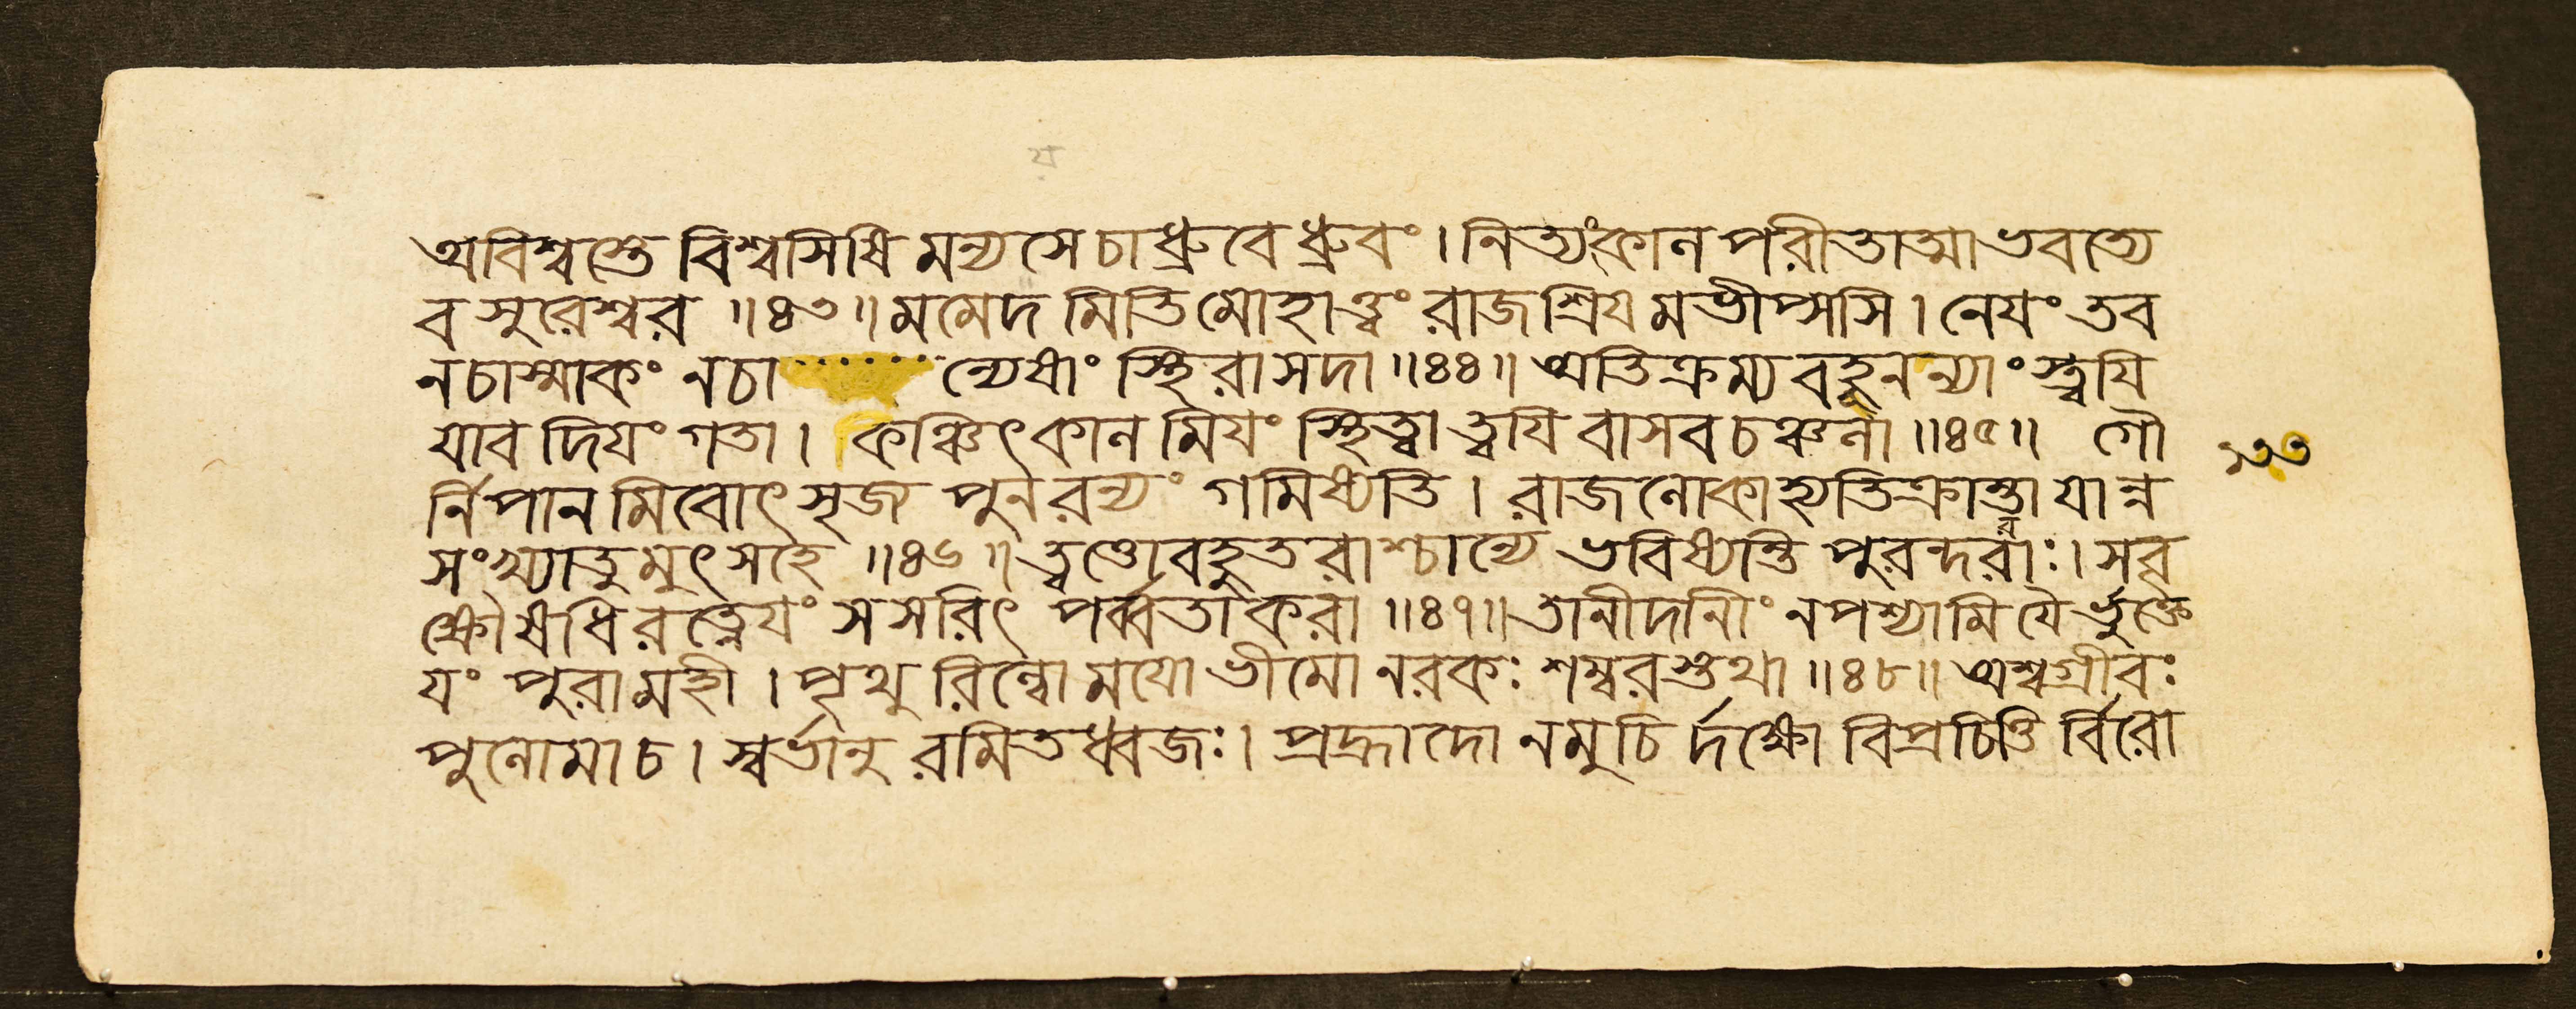 য
অবিশ্বস্তে বিশ্বসিষি মন্যসে চাধ্রুবে ধ্রুবং। নিত্যংকালপরীতাত্মা ভবত্যে
ব সুরেশ্বর ॥৪৩॥ মমেদমিতি মোহাত্ত্বং রাজশ্রিয়মভীপ্সসি। নেয়ং তব
নচাস্মাকং নচা ...... ন্যেষাং স্থিরাসদা ॥৪৪॥ অতিক্রম্য বহূনন্যাংস্ত্বয়ি
যাবদিয়ং গতা। কঞ্চিৎকালমিয়ং স্থিত্বা ত্বয়ি বাসব চঞ্চলা ॥৪৫॥ গৌ
র্নিপানমিবোৎসৃজ্য পুনরন্যং গমিষ্যতি। রাজলোকাহ্যতিক্রান্তা যান্ন
সংখ্যাতুমুৎসহে ॥৪৬॥ ত্বত্তোবহুতরাশ্চান্যে ভবিষ্যন্তি পুরন্দরাঃ। সবৃ
ক্ষৌষধিরত্নেয়ং সসরিৎ পর্ব্বতাকরা ॥৪৭॥ তানীদানীং নপশ্যামি যৈর্ভুক্তে
য়ং পুরামহী। পৃথুরিল্বোময়োভীমো নরকঃ শম্বরস্তথা ॥৪৮॥ অশ্বগ্রীবঃ
পুলোমাচ। স্বর্ভানুরমিতধ্বজঃ। প্রহ্লাদো নমুচির্দক্ষো বিপ্রচিত্তির্বিরো